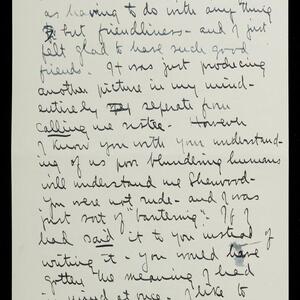 as having to do with anything
but friendliness - and I just
felt glad to have such good
friends. It was just producing
another picture in my mind -
entirely seperate from
calling me sister. However
I know you with you understand-
ing of us poor blundering humans
will understand me Sherwood -
You were not rude - and I was
just sort of "bantering". If I
had said it to you instead of
writing it - you would have
gotten the meaning I had
in mind at once. I like to